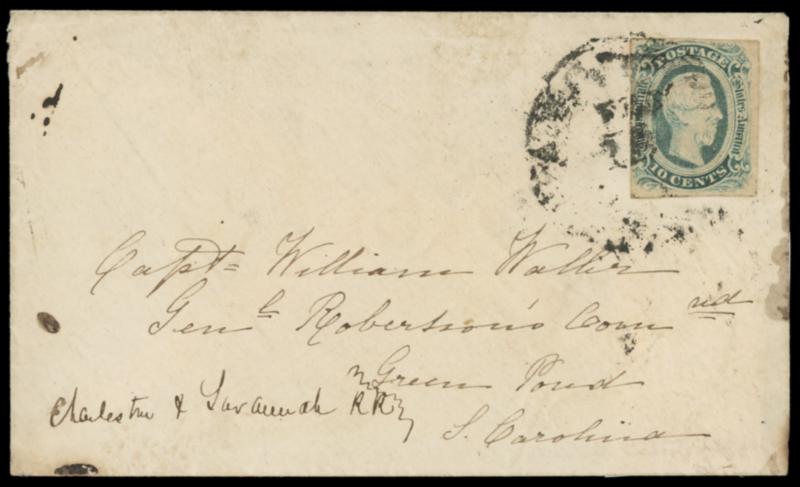 POSTAGE
States America
10 CENTS
Capt= William Waller
Gen^l Robertson's Com^nd
Green Pond
Charleston & Savannah RR
S. Carolina